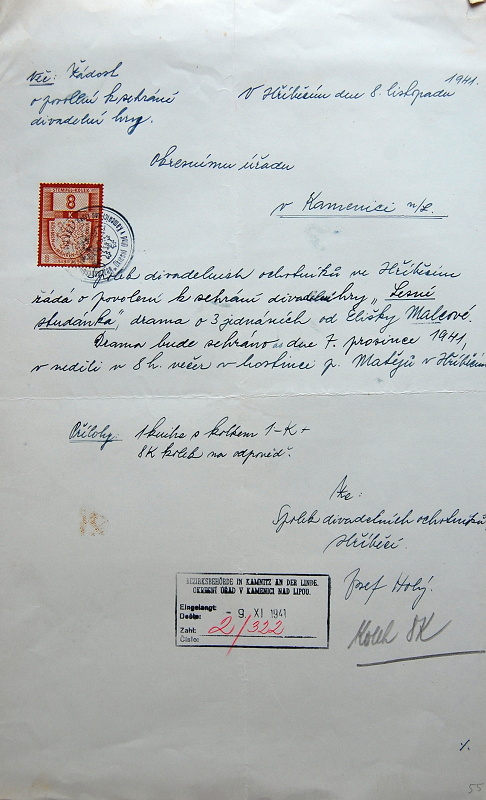 Věc: Žádost
o povolení k sehrání
divadelní hry.
V Hříběcím dne 8. listopadu 1941.
Okresnímu úřadu
v Kamenici n/L.
8
K
Spolek divadelních ochotníků ve Hříběcím
žádá o povolení k sehrání divadelní hry „Lesní
studánka", drama o 3 jednáních od Elišky Malcové.
Drama bude sehráno dne 7. prosince 1941,
v neděli v 8 h. večer v hostinci p. Matějů v Hříběcím
Přílohy: 1 kniha s kolkem 1-K +
8K kolek na odpověď.
Za:
Spolek divadelních ochotníků
Hříběcí.
Josef Holý.
Kolek 8K
BEZIRKSBEHÖRDE IN KAMNITZ AN DER LINDE.
OKRESNÍ ÚŘAD V KAMENICI NAD LIPOU.
Eingelangt:
Došlo: - 9. XI 1941
Zahl: 2/322
Číslo:
./.
55